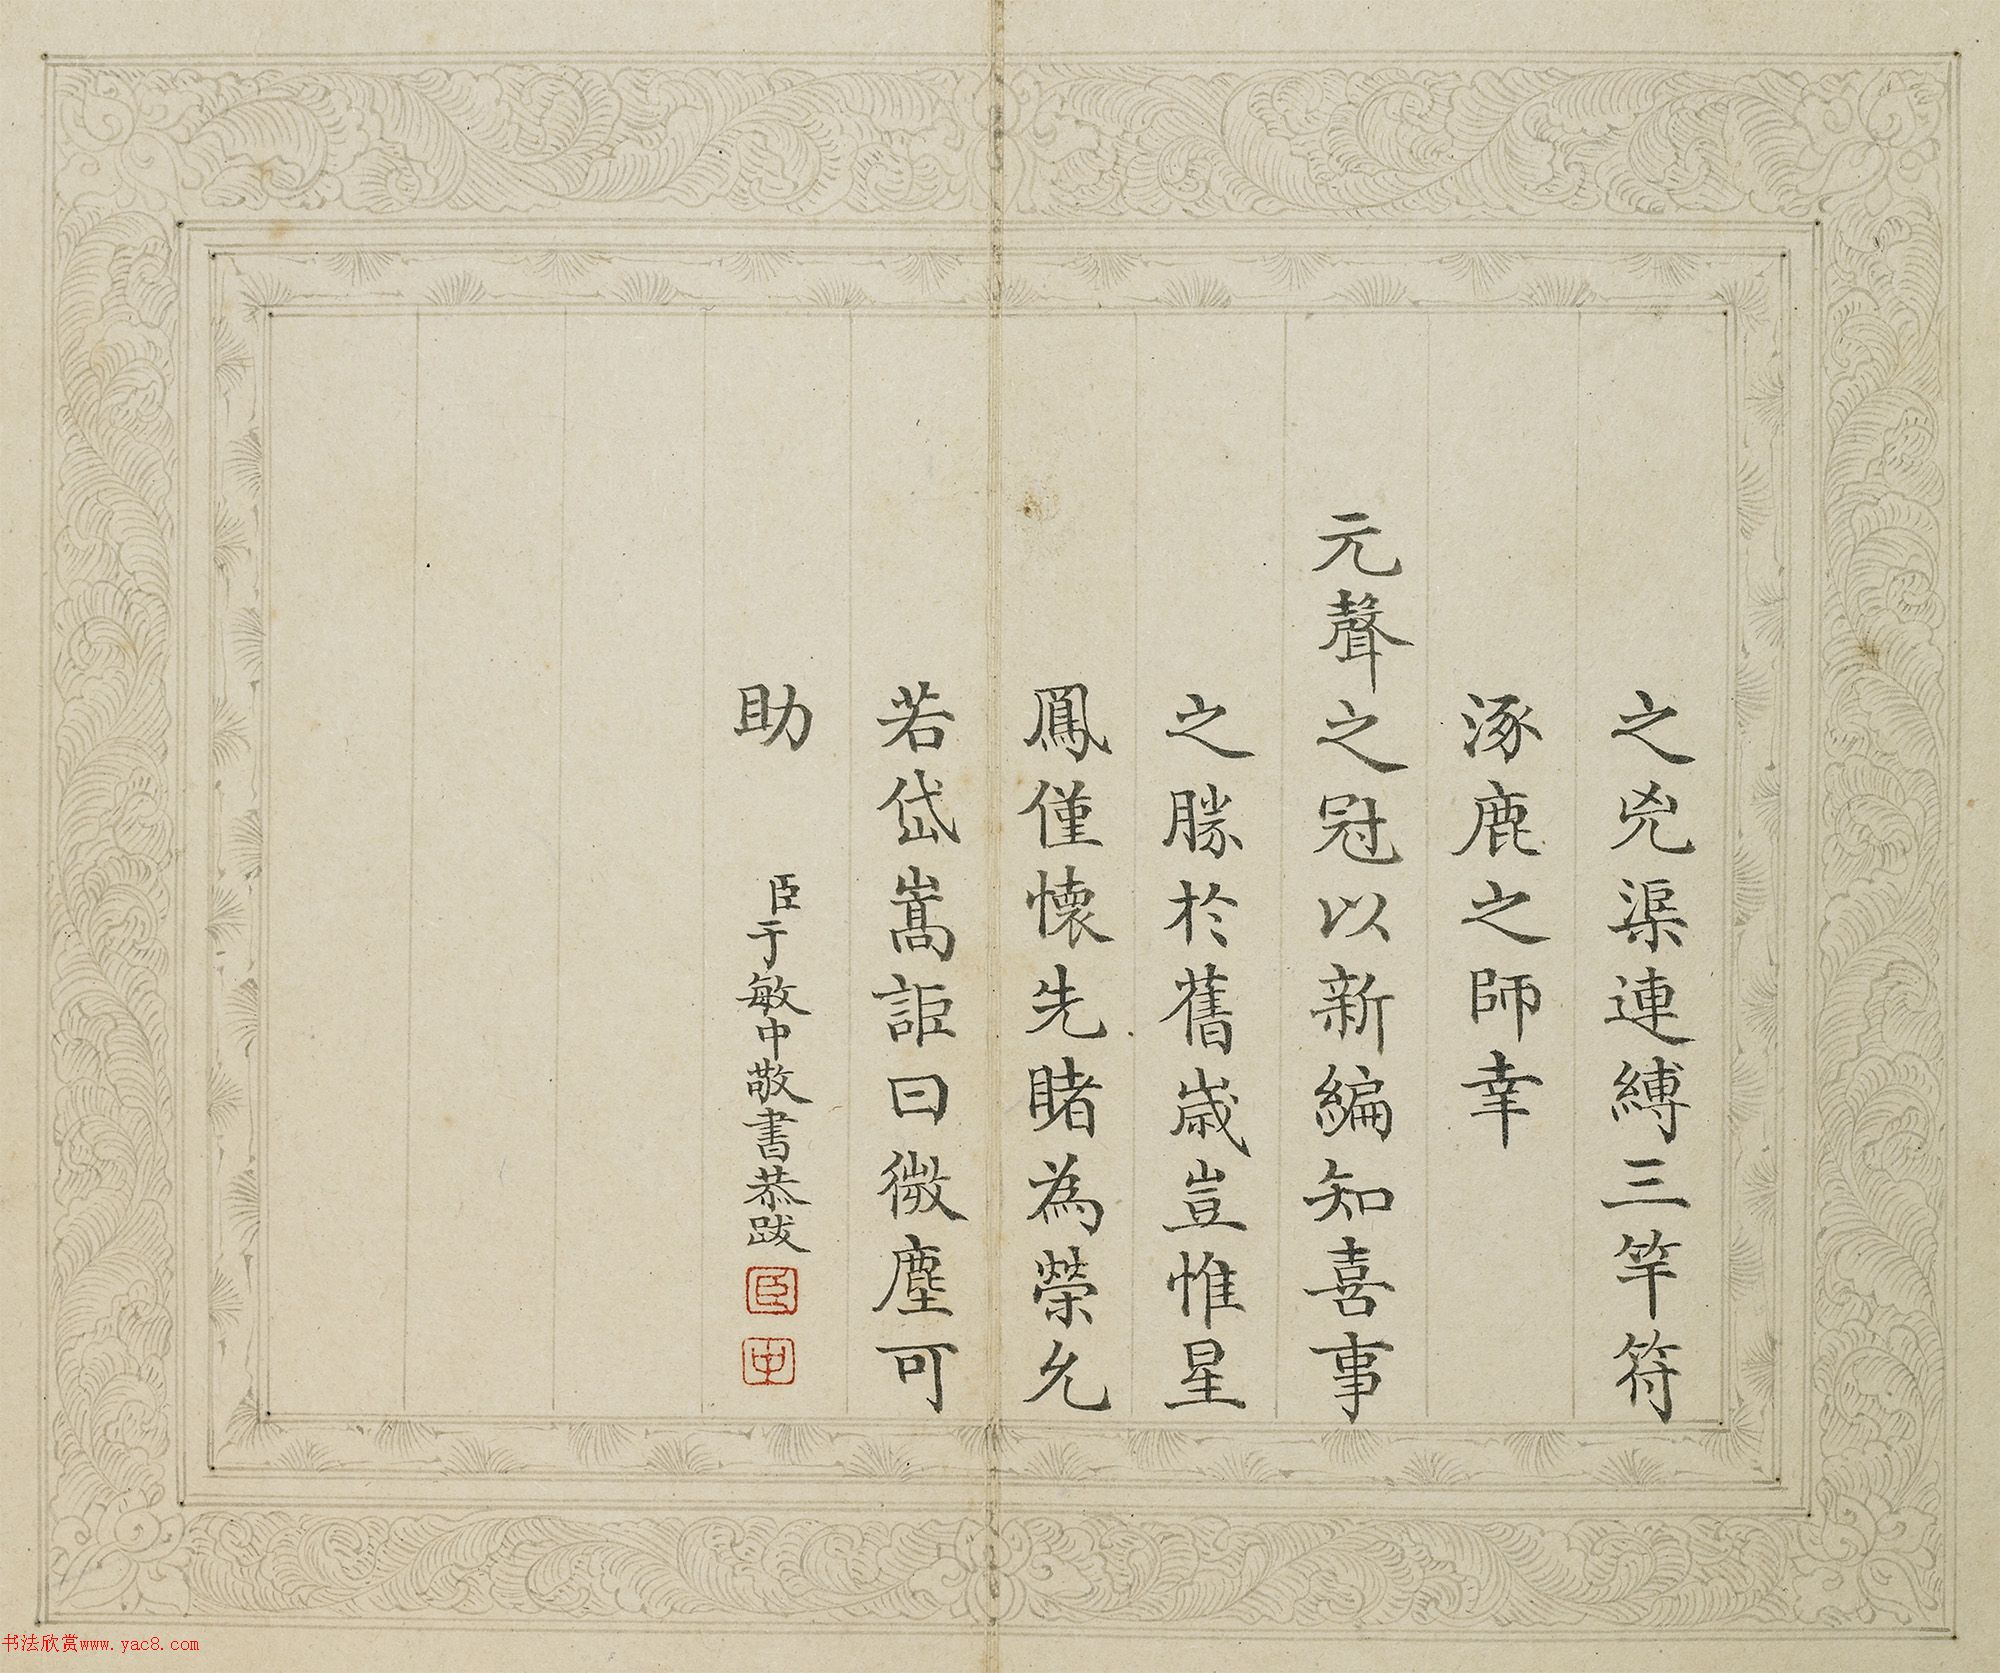 之兇渠連縛三竿符
涿鹿之師幸
元聲之冠以新編知喜事
之勝於舊歲豈惟星
鳳僅懷先睹為榮允
若岱嵩詎曰微塵可
助
臣于敏中敬書恭跋
臣
中
书法欣赏www.yac8.com